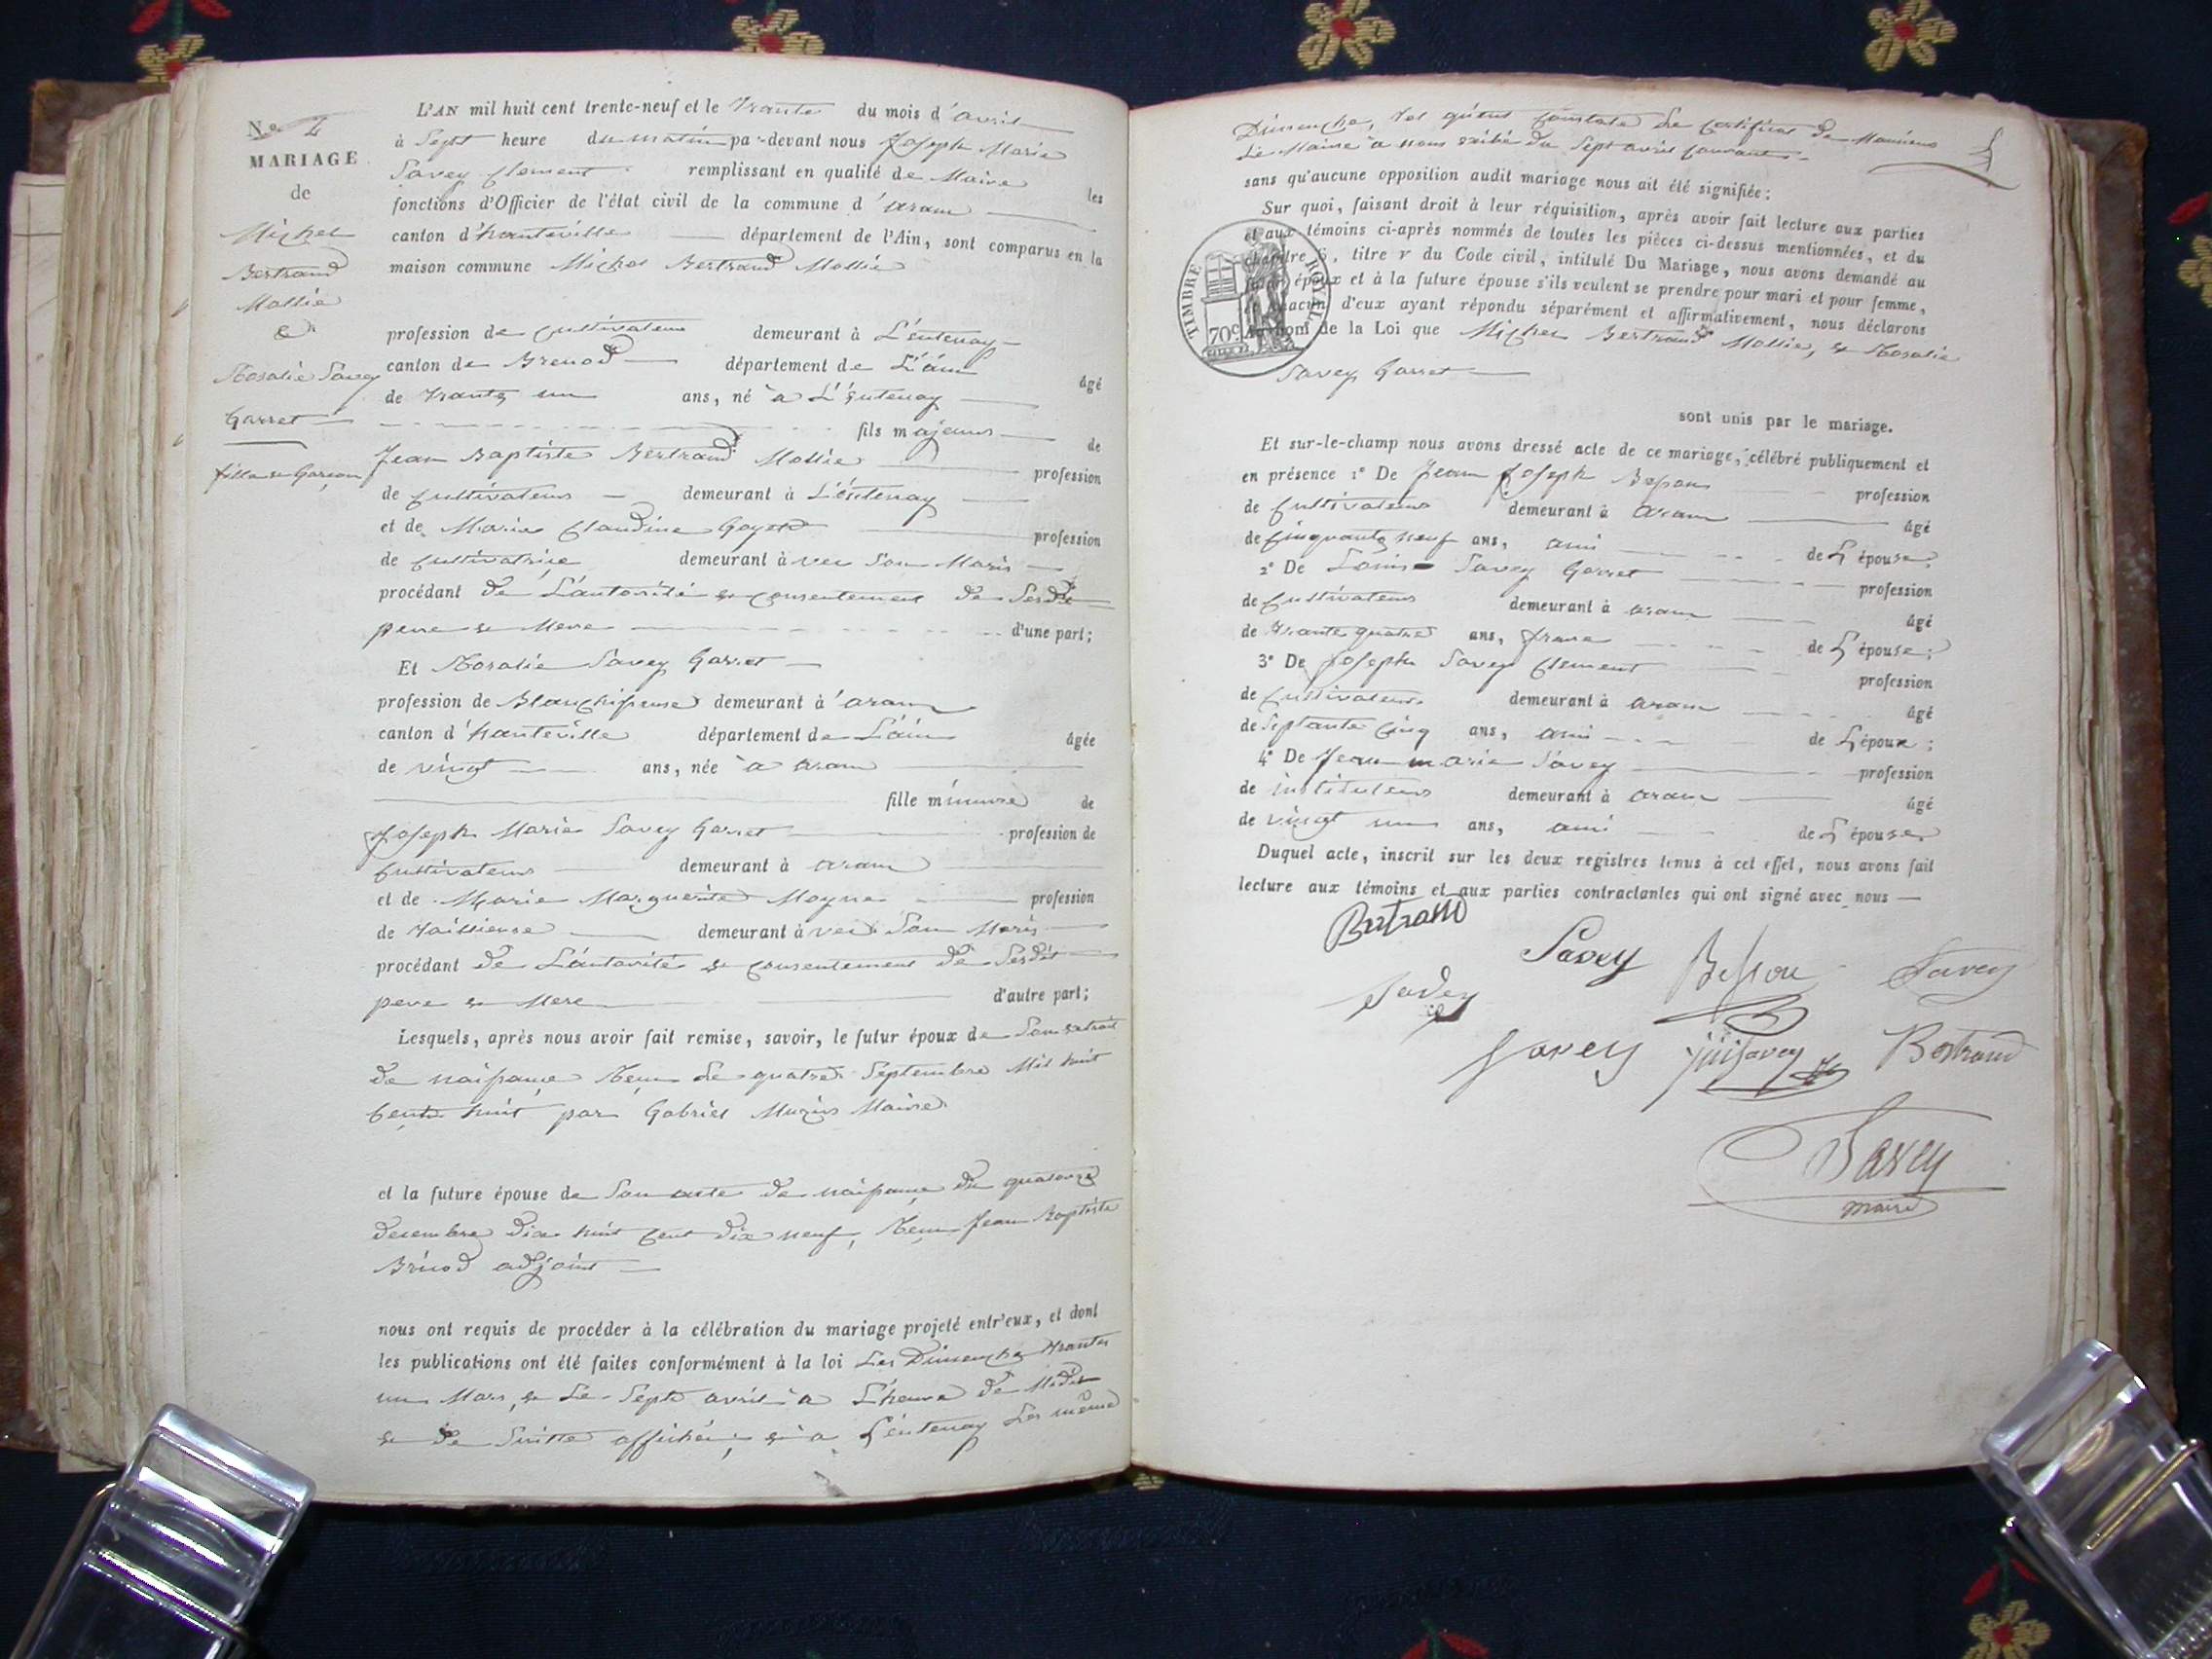 No 4
MARIAGE
de
Michel
Bertrand
Mollie
&
Rosalie Savey
Garret
fille & Garçon
L'AN mil huit cent trente-neuf et le trante du mois d'avril
à Sept heure du matin par-devant nous Joseph Marie
Savey Clement remplissant en qualité de Maire les
fonctions d'Officier de l'état civil de la commune d'aram
canton d'hauteville département de l'Ain, sont comparus en la
maison commune Michel Bertrand Mollie
profession de cultivateur demeurant à L'entenay
canton de Brenod département de L'ain âgé
de trante un ans, né à L'entenay
fils majeur de
Jean Baptiste Bertrand Mollie profession
de cultivateur demeurant à L'entenay
et de Marie Claudine Goyet profession
de cultivatrice demeurant à vec Son Maris
procédant de L'autorité & consentement de Sesdit
pere & Mere d'une part;
Et Rosalie Savey Garret
profession de Blanchiseuse demeurant à aram
canton d'hauteville département de L'ain âgée
de vingt ans, née à aram
fille mineure de
Joseph Marie Savey Garret profession de
cultivateur demeurant à aram
et de Marie Marguerite Moyne profession
de taillieuse demeurant à vec Son Maris
procédant de L'autorité & consentement de Sesdit
pere & Mere d'autre part;
Lesquels, après nous avoir fait remise, savoir, le futur époux de Son extrait
de naissance Reçu Le quatre Septembre Mil huit
Cent huit par Gabriel Maire
et la future épouse de Son acte de naissance du quatorze
desembre dix huit cent dix neuf, Reçu Jean Baptiste
Brúod adjoint
nous ont requis de procéder à la célébration du mariage projeté entr'eux, et dont
les publications ont été faites conformément à la loi Les Dimenche trante
un Mars, & Le Sept avril à L'heure de Midit
& de Suitte affiché; & à L'entenay Les même
Dimenche, tel qu'est Constaté Le Certificat de Monsieur
Le Maire à nous exibé du Sept avril Courant
sans qu'aucune opposition audit mariage nous ait été signifiée;
Sur quoi, faisant droit à leur réquisition, après avoir fait lecture aux parties
et aux témoins ci-après nommés de toutes les pièces ci-dessus mentionnées, et du
chapitre 6, titre v du Code civil, intitulé Du Mariage, nous avons demandé au
futur époux et à la future épouse s'ils veulent se prendre pour mari et pour femme,
et chacun d'eux ayant répondu séparément et affirmativement, nous déclarons
au nom de la Loi que Michel Bertrand Mollie, & Rosalie
Savey Garret
TIMBRE ROYAL
70c.
sont unis par le mariage.
Et sur-le-champ nous avons dressé acte de ce mariage, célébré publiquement et
en présence 1° De Jean Joseph Besson profession
de cultivateur demeurant à aram âgé
de cinquante neuf ans, ami de L'épouse;
2° De Louis Savey Garret profession
de cultivateur demeurant à aram âgé
de trante quatre ans, frere de L'épouse;
3° De Joseph Savey Clement profession
de cultivateur demeurant à aram âgé
de Septante Cinq ans, ami de L'époux;
4° De Jean marie Savey profession
de instituteur demeurant à aram âgé
de vingt un ans, ami de L'épouse
Duquel acte, inscrit sur les deux registres tenus à cet effet, nous avons fait
lecture aux témoins et aux parties contractantes qui ont signé avec nous
Bertrand
Savey Besson Savey
Savey
Savey Savey Bertrand
Savey
maire